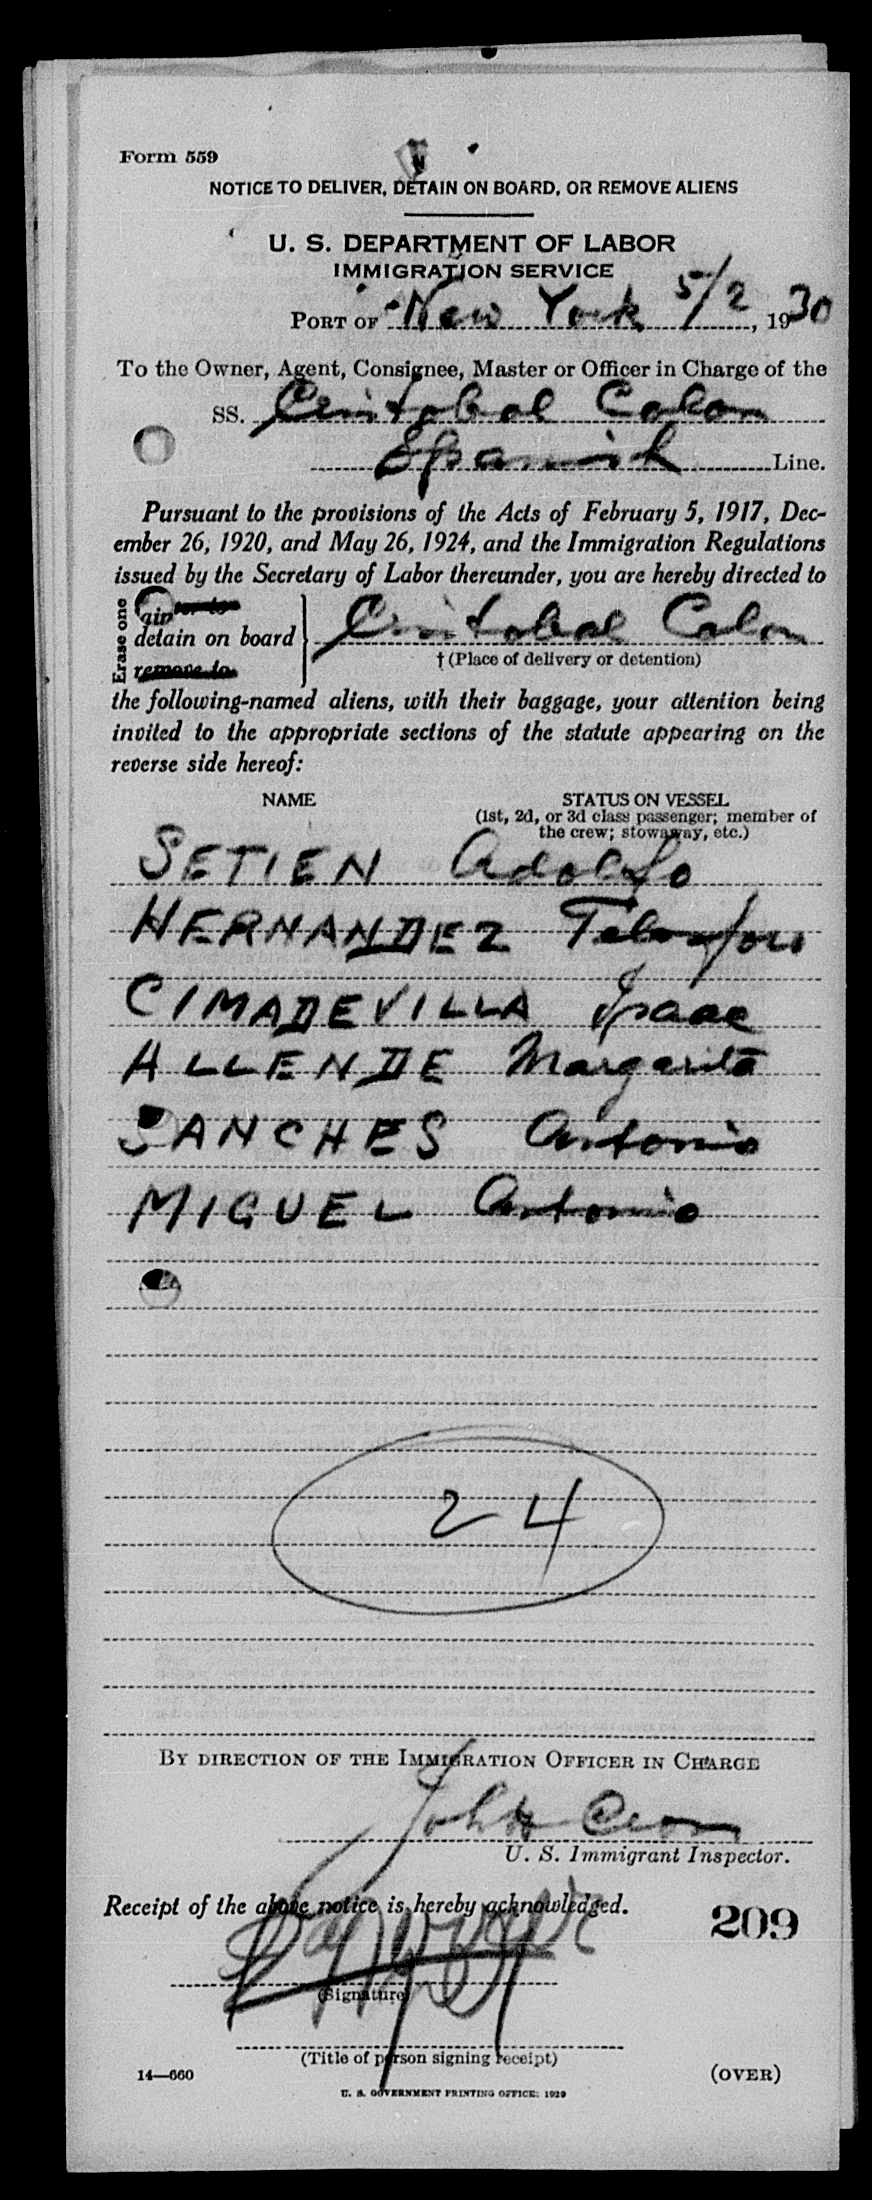 Form 559
NOTICE TO DELIVER, DETAIN ON BOARD, OR REMOVE ALIENS
U. S. DEPARTMENT OF LABOR
IMMIGRATION SERVICE
PORT OF New York 5/2, 1930
To the Owner, Agent, Consignee, Master or Officer in Charge of the
SS. Cristobal Colon
Spanish Line.
Pursuant to the provisions of the Acts of February 5, 1917, Dec-
ember 26, 1920, and May 26, 1924, and the Immigration Regulations
issued by the Secretary of Labor thereunder, you are hereby directed to
Erase one
detain on board Cristobal Colon
remove to
† (Place of delivery or detention)
the following-named aliens, with their baggage, your attention being
invited to the appropriate sections of the statute appearing on the
reverse side hereof:
NAME STATUS ON VESSEL
(1st, 2d, or 3d class passenger; member of
the crew; stowaway, etc.)
SETIEN Adolfo
HERNANDEZ
CIMADEVILLA Isaac
ALLENDE Margarita
SANCHES Antonio
MIGUEL Antonio
24
BY DIRECTION OF THE IMMIGRATION OFFICER IN CHARGE
John
U. S. Immigrant Inspector.
Receipt of the above notice is hereby acknowledged.
209
(Signature)
(Title of person signing receipt)
14—660
(OVER)
U. S. GOVERNMENT PRINTING OFFICE: 1929